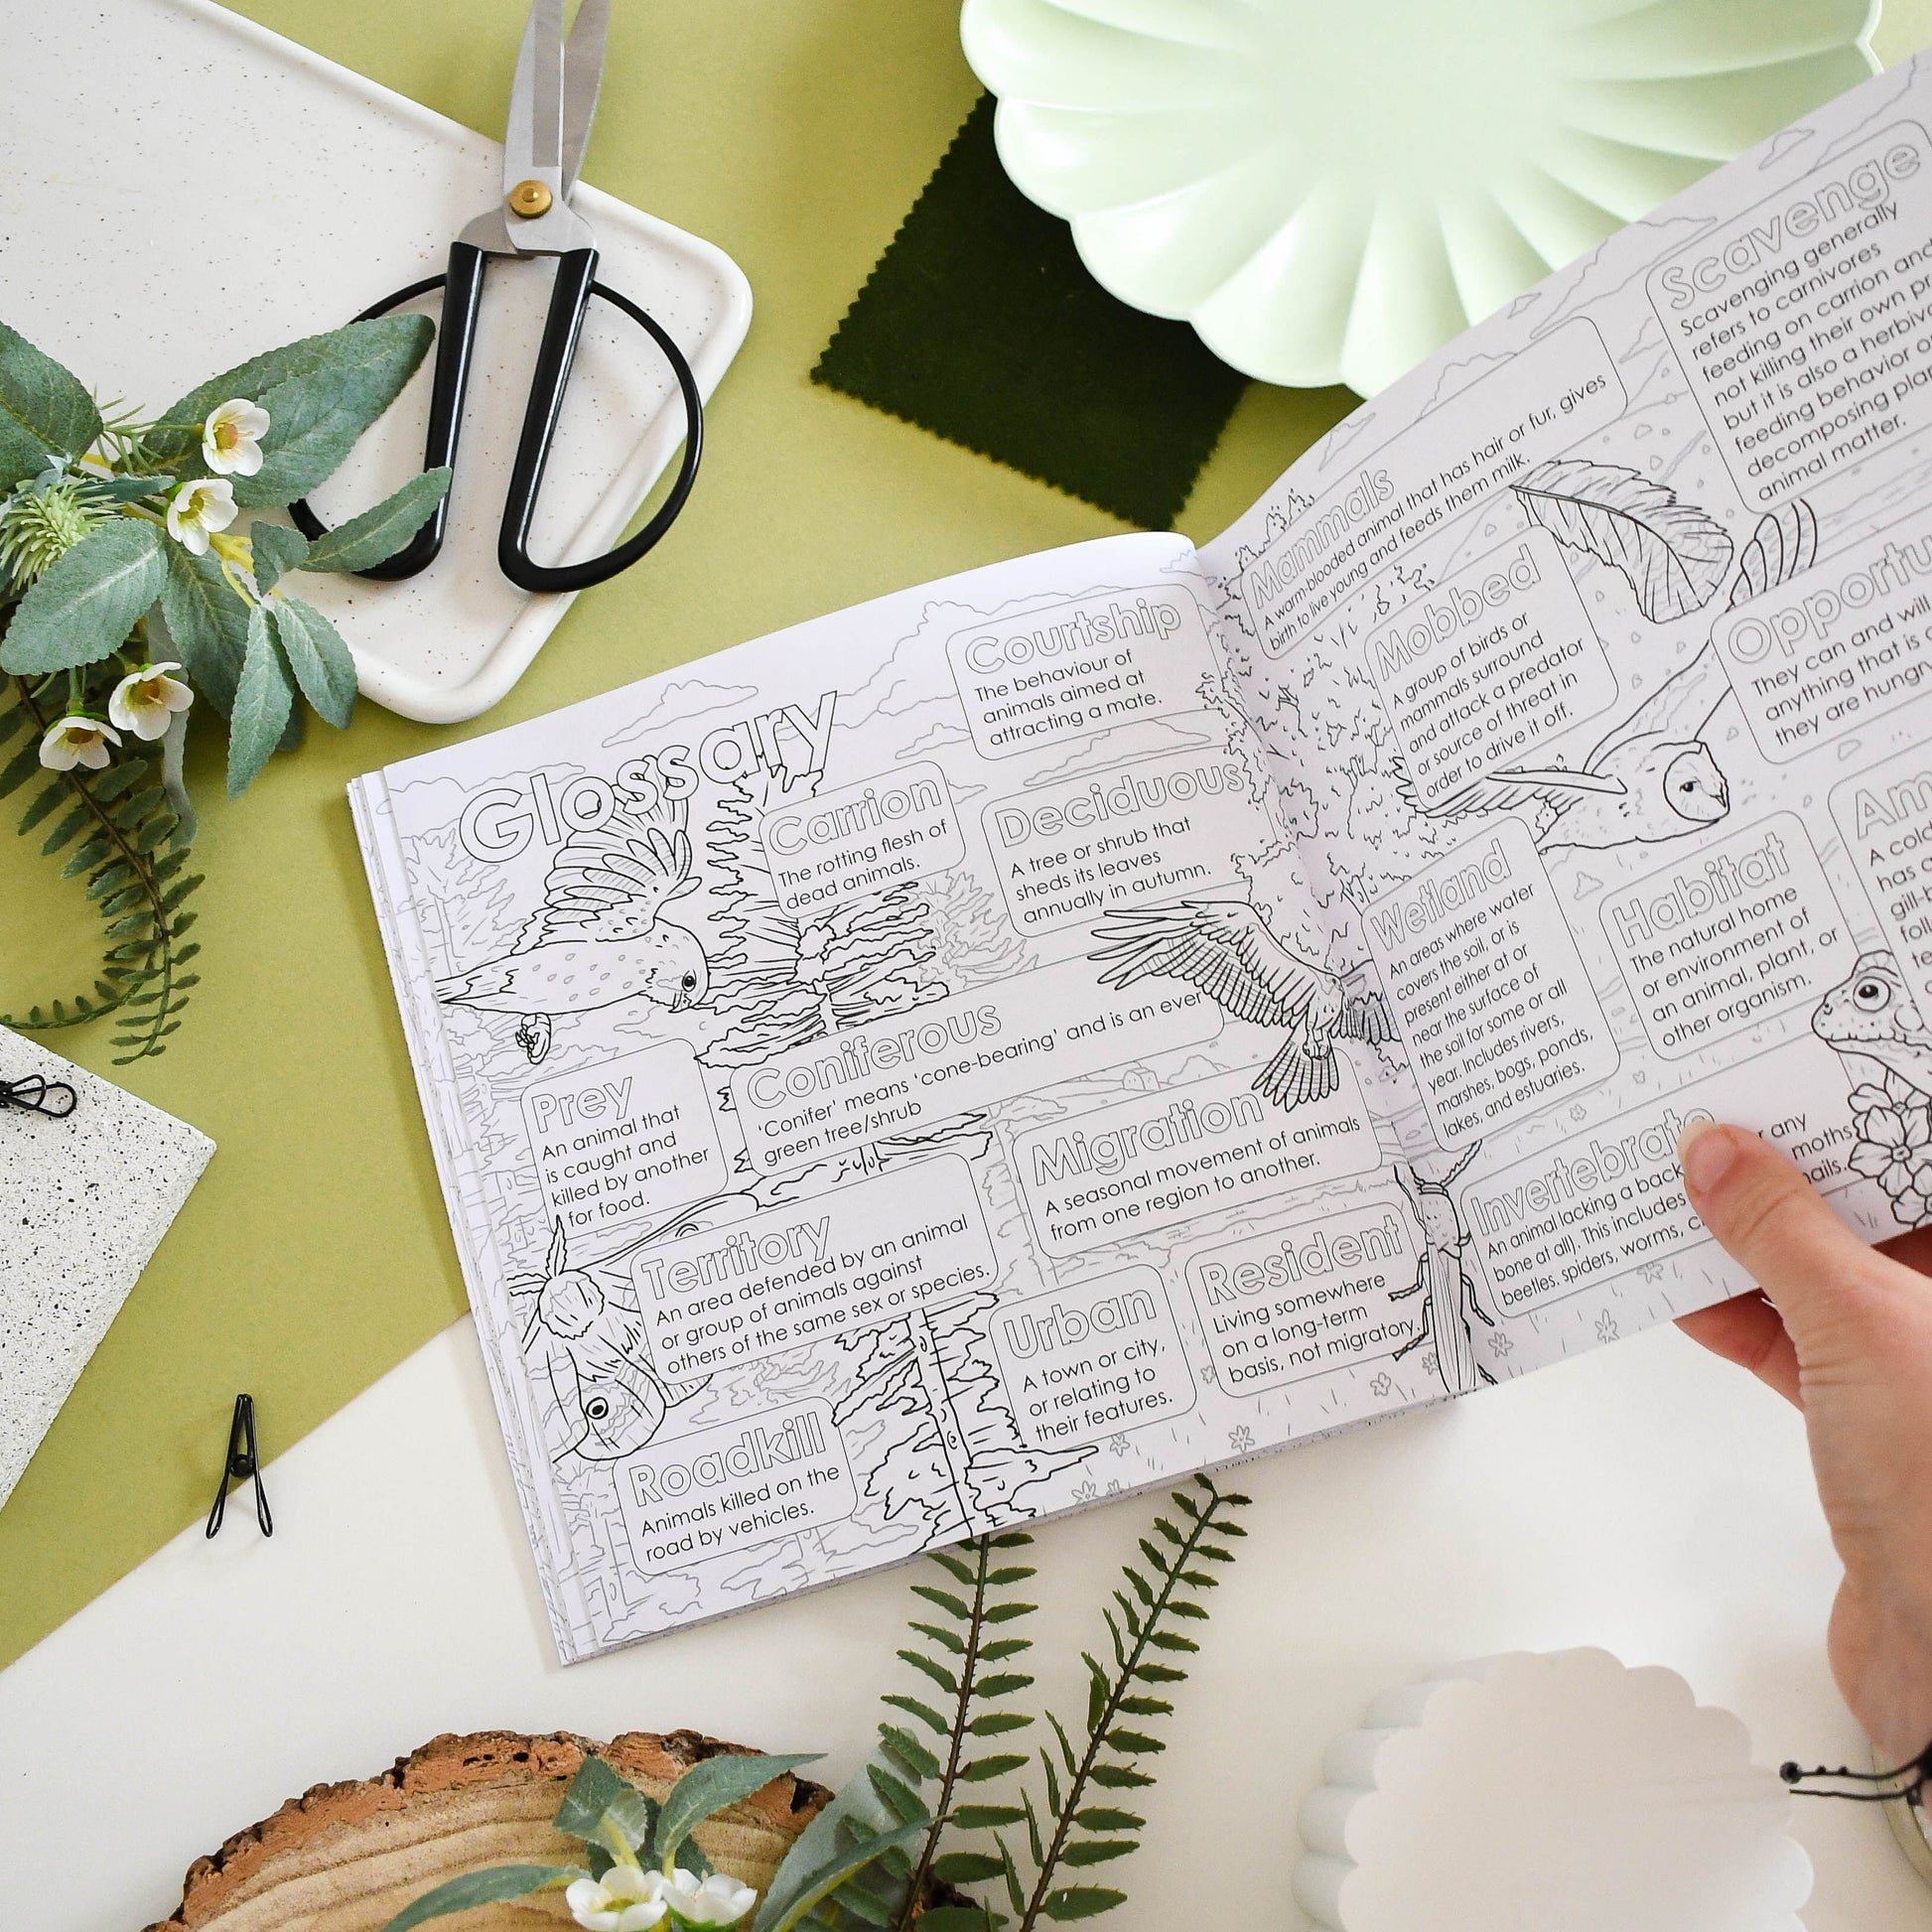 Glossary
Courtship
The behaviour of
animals aimed at
attracting a mate.
Carrion
The rotting flesh of
dead animals.
Deciduous
A tree or shrub that
sheds its leaves
annually in autumn.
Coniferous
'Conifer' means 'cone-bearing' and is an ever
green tree/shrub
Prey
An animal that
is caught and
killed by another
for food.
Migration
A seasonal movement of animals
from one region to another.
Territory
An area defended by an animal
or group of animals against
others of the same sex or species.
Urban
A town or city,
or relating to
their features.
Resident
Living somewhere
on a long-term
basis, not migratory.
Roadkill
Animals killed on the
road by vehicles.
Mammals
A warm-blooded animal that has hair or fur, gives
birth to live young and feeds them milk.
Scavenge
Scavenging generally
refers to carnivores
feeding on carrion and
not killing their own
but it is also a
feeding behavior
decomposing
animal matter.
Mobbed
A group of birds or
mammals surround
and attack a predator
or source of threat in
order to drive it off.
They can and will
anything that is
they are
Wetland
An areas where water
covers the soil, or is
present either at or
near the surface of
the soil for some or all
year. Includes rivers,
marshes, bogs, ponds,
lakes, and estuaries.
Habitat
The natural home
or environment of
an animal, plant, or
other organism.
A
has
Invertebrate
An animal lacking a back
any
bone at all). This includes
moths
beetles, spiders, worms,